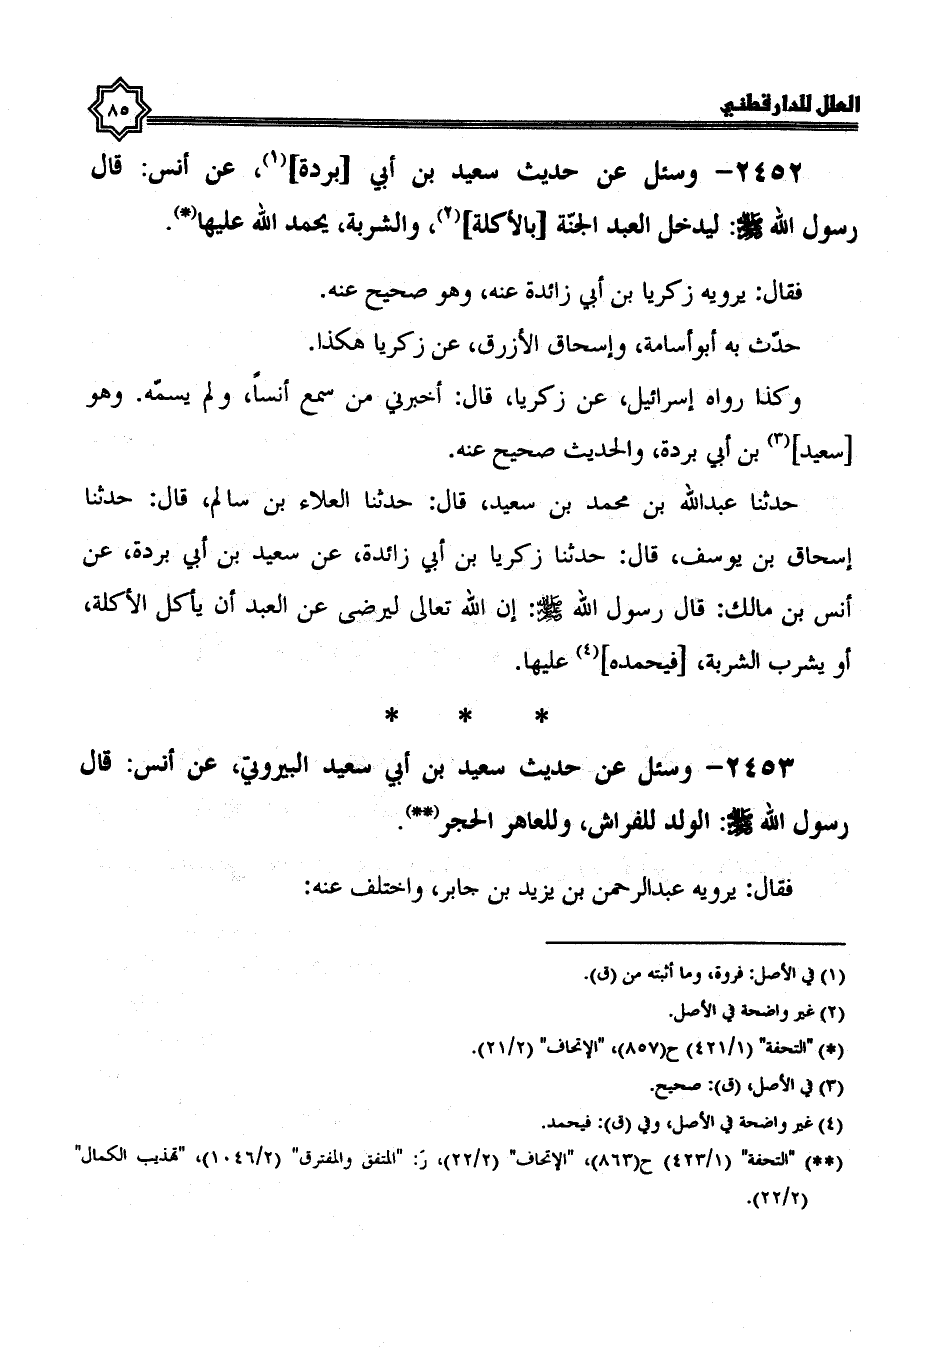 العلل للدارقطني
٨٥
٢٤٥٢- وسئل عن حديث سعيد بن أبي [بردة](١)، عن أنس: قال
رسول الله ﷺ: ليدخل العبد الجنّة [بالأكلة](٢)، والشربة، يحمد الله عليها(*).
فقال: يرويه زكريا بن أبي زائدة عنه، وهو صحيح عنه.
حدّث به أبوأسامة، وإسحاق الأزرق، عن زكريا هكذا.
وكذا رواه إسرائيل، عن زكريا، قال: أخبرني من سمع أنساً، ولم يسمّه. وهو
[سعيد](٣) بن أبي بردة، والحديث صحيح عنه.
حدثنا عبدالله بن محمد بن سعيد، قال: حدثنا العلاء بن سالم، قال: حدثنا
إسحاق بن يوسف، قال: حدثنا زكريا بن أبي زائدة، عن سعيد بن أبي بردة، عن
أنس بن مالك: قال رسول الله ﷺ: إن الله تعالى ليرضى عن العبد أن يأكل الأكلة،
أو يشرب الشربة، [فيحمده](٤) عليها.
* * *
٢٤٥٣- وسئل عن حديث سعيد بن أبي سعيد البيروتيّ، عن أنس: قال
رسول الله ﷺ: الولد للفراش، وللعاهر الحجر(**).
فقال: يرويه عبدالرحمن بن يزيد بن جابر، واختلف عنه:
(١) في الأصل: فروة، وما أثبته من (ق).
(٢) غير واضحة في الأصل.
(*) "التحفة" (٤٢١/١) ح(٨٥٧)، "الإتحاف" (٢١/٢).
(٣) في الأصل، (ق): صحيح.
(٤) غير واضحة في الأصل، وفي (ق): فيحمد.
(**) "التحفة" (٤٢٣/١) ح(٨٦٣)، "الإتحاف" (٢٢/٢)، رَ: "المتفق والمفترق" (١٠٤٦/٢)، "تهذيب الكمال"
(٢٢/٢).